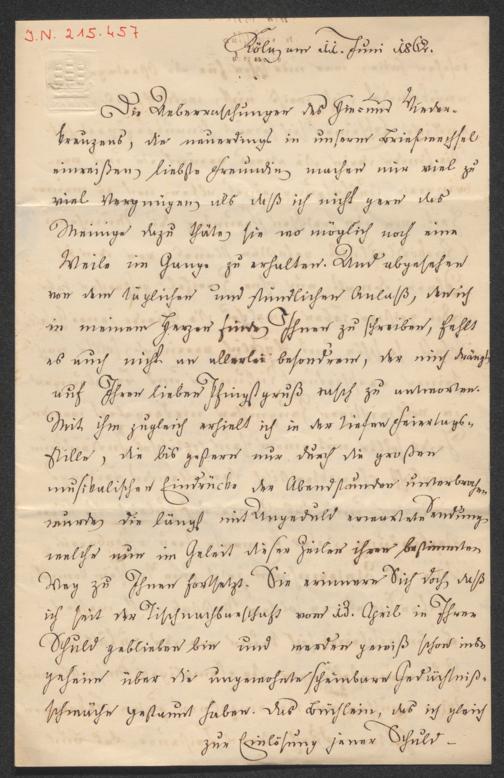 J.N. 215.457
Köln am 11. Juni 1862.
Die Ueberraschungen des Hin und Wieder-
kreuzens, die neuerdings in unserm Briefwechsel
einreißen, liebste Freundin, machen mir viel zu
viel Vergnügen, als daß ich nicht gern das
Meinige dazu thäte, sie wo möglich noch eine
Weile im Gange zu erhalten. Und abgesehen
von dem täglichen und stündlichen Anlaß, den ich
in meinem Herzen finde, Ihnen zu schreiben, fehlt
es auch nicht an allerlei besondrem, der mich drängt
auf Ihren lieben Pfingstgruß rasch zu antworten.
Mit ihm zugleich erhielt ich in der tiefen Feiertags-
stille, die bis gestern nur durch die großen
musikalischen Eindrücke der Abendstunden unterbrochen
wurde, die längst mit Ungeduld erwartete Sendung,
welche nun im Geleit dieser Zeilen ihren bestimmten
Weg zu Ihnen fortsetzt. Sie erinnern Sich doch, daß
ich seit der Tischnachbarschaft vom 13. April in Ihrer
Schuld geblieben bin und werden gewiß schon ins-
geheim über die ungewohnte scheinbare Gedächtniß-
schwäche gestaunt haben. Das Büchlein, das ich gleich
zur Einlösung jener Schuld –